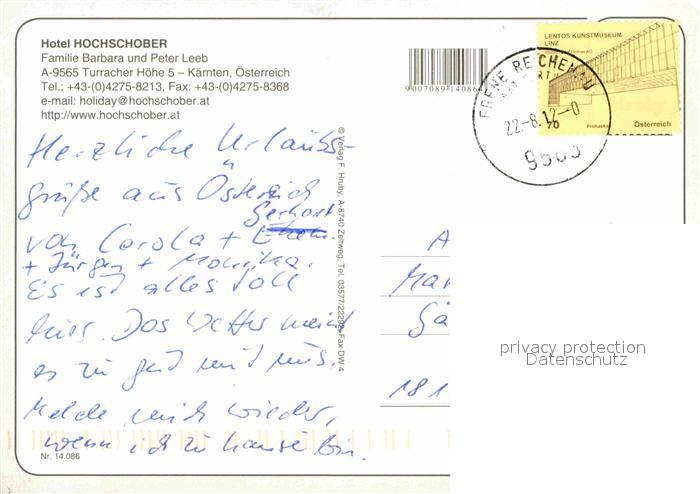 Hotel HOCHSCHOBER
Familie Barbara und Peter Leeb
A-9565 Turracher Höhe 5 – Kärnten, Österreich
Tel.: +43-(0)4275-8213, Fax: +43-(0)4275-8368
e-mail: holiday@hochschober.at
http://www.hochschober.at
9007089140864
LENTOS KUNSTMUSEUM
LINZ
Österreich
EBENE REICHENAU
22-8.12-0
9565
Herzliche Urlaubs-
grüße aus Östereich
Gerhart
von Corola +
+ Jürgen + Monika.
Es ist alles toll
hier. Das Wetter meint
es zu gut mit uns.
Melde mich wieder,
wenn ich zu hause bin.
© Verlag F. Hruby, A-8740 Zeltweg, Tel. 03577/22292, Fax DW 4
A
Mar
Gä
181
privacy protection
Datenschutz
Nr. 14.086